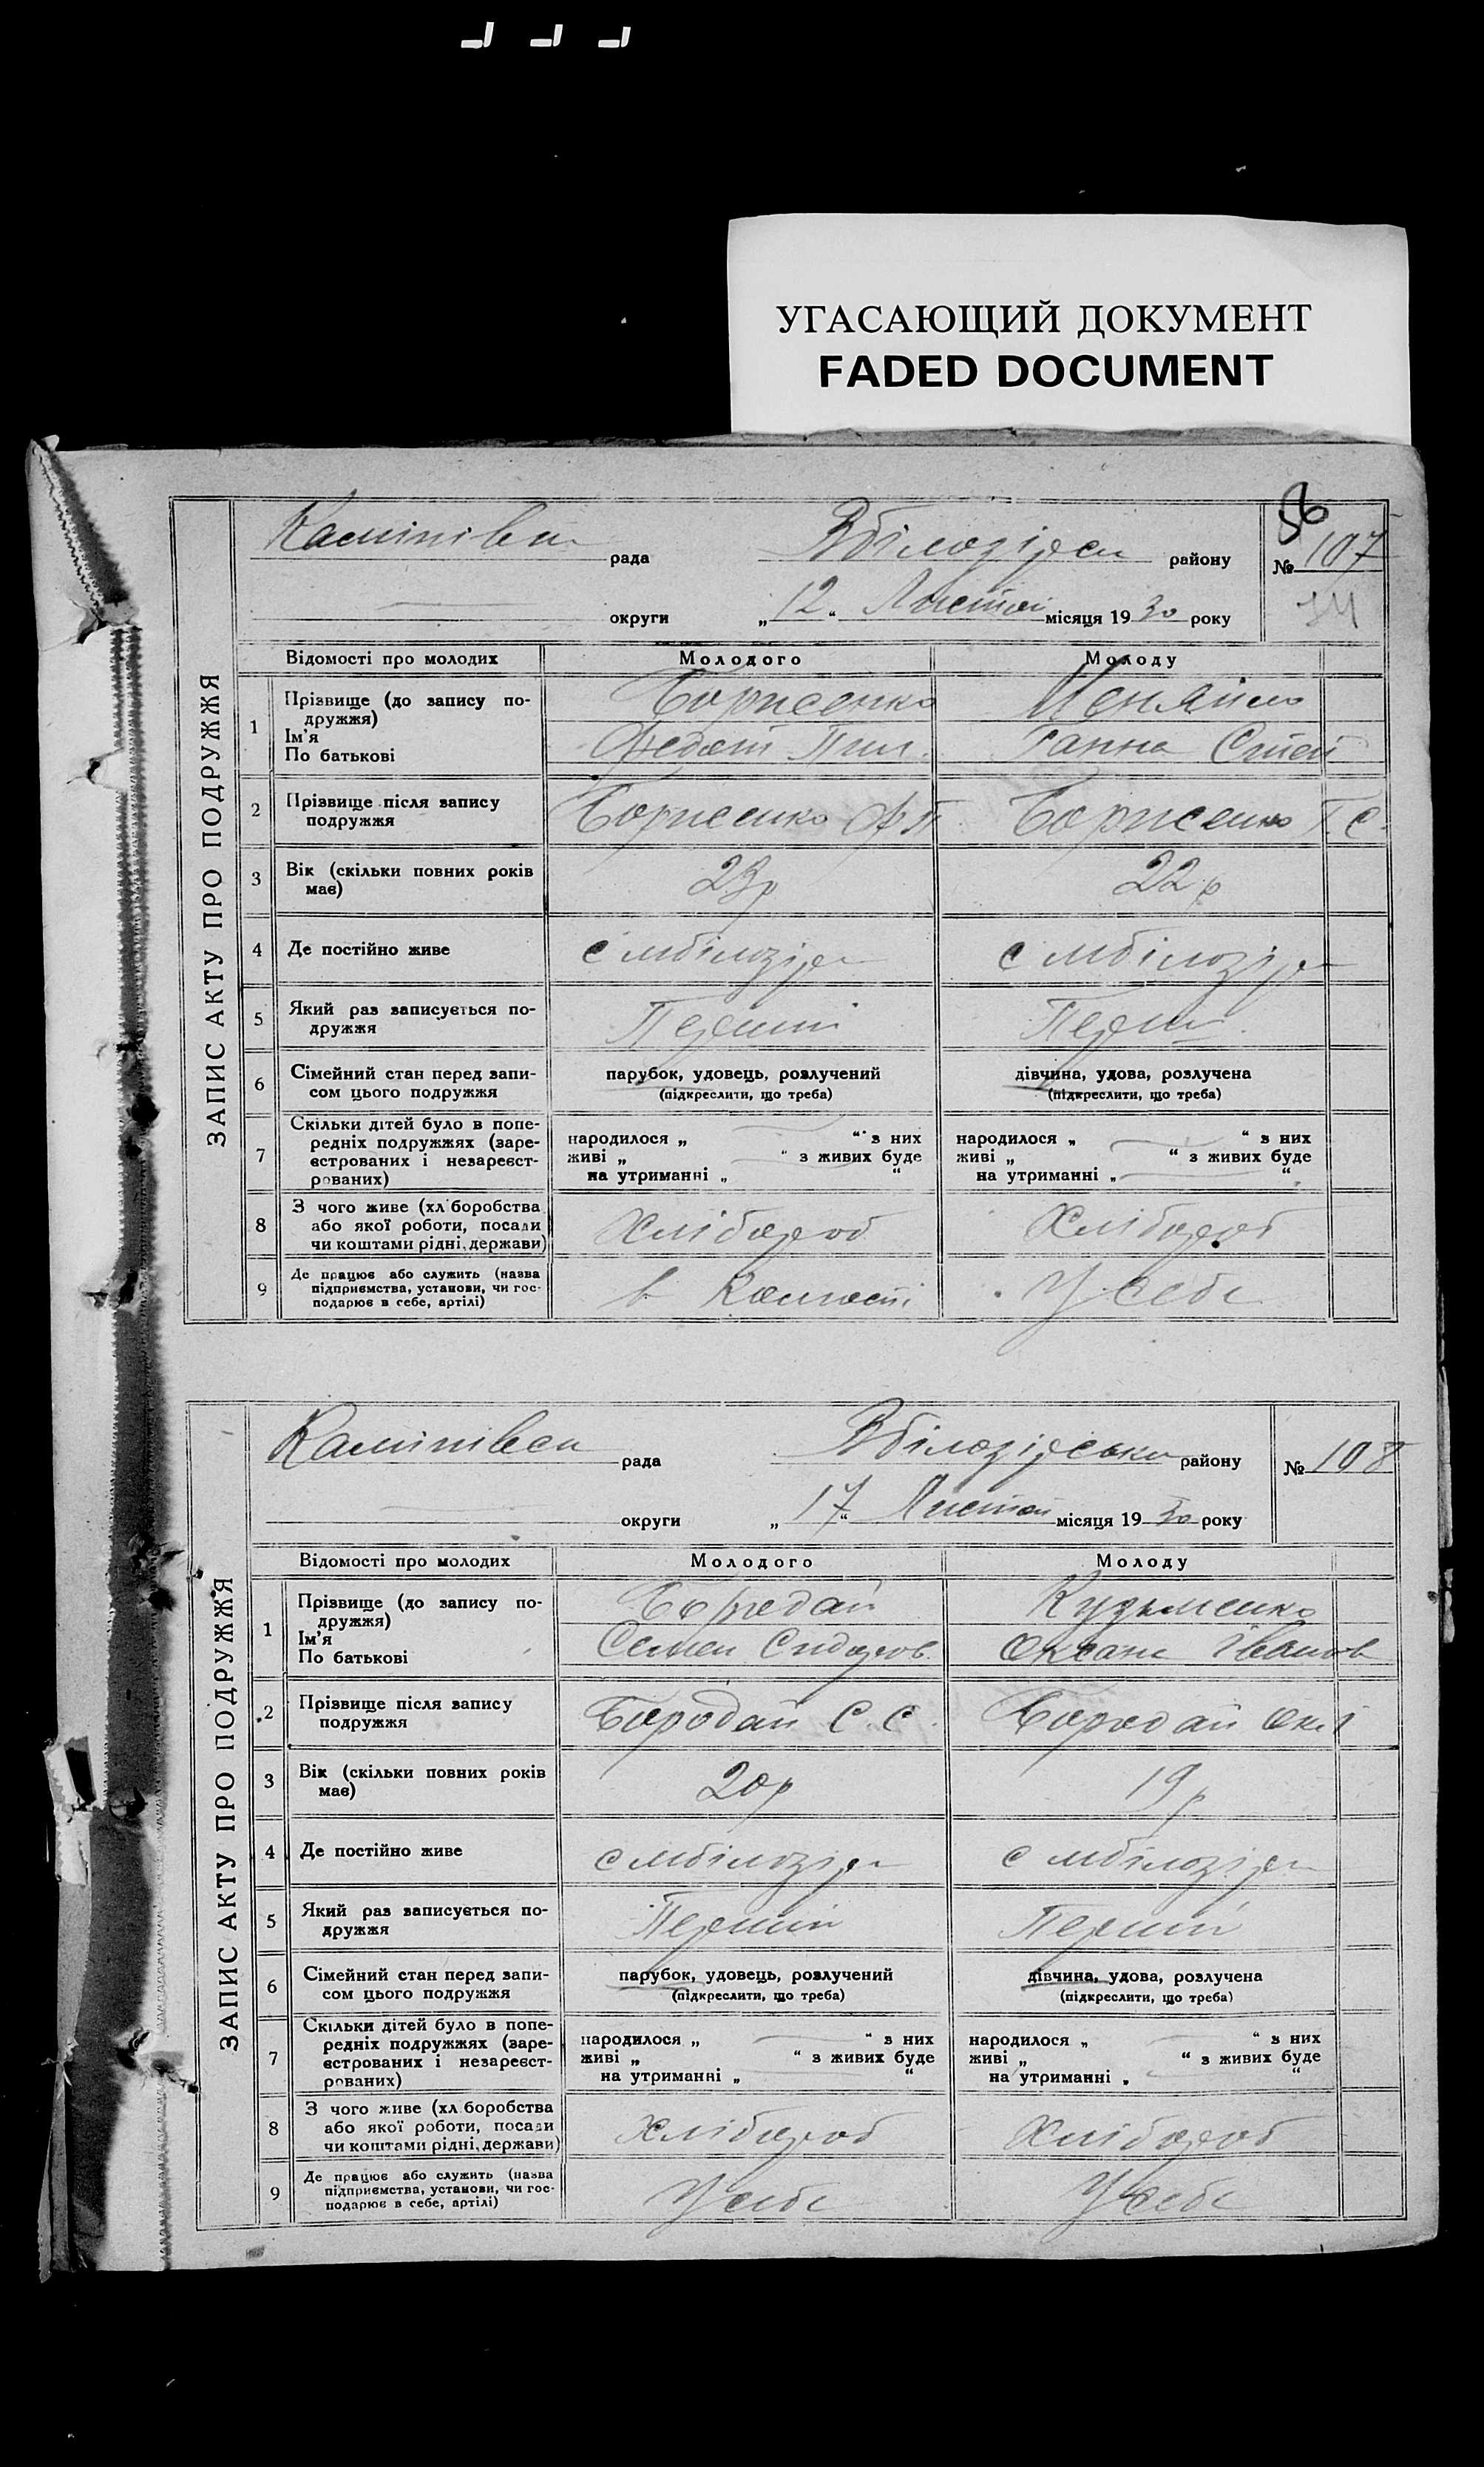 УГАСАЮЩИЙ ДОКУМЕНТ
FADED DOCUMENT
56
ЗАПИС АКТУ ПРО ПОДРУЖЖЯ
рада Вбілозірськ району № 107
округи „12“ Листоп місяця 1930 року
Відомості про молодих Молодого Молоду
1 Прізвище (до запису по-
дружжя) Борисенко
Ім'я
По батькові Федот Пил. Ганна Степ
2 Прізвище після запису
подружжя Борисенко Ф П. Борисенко Г. С.
3 Вік (скільки повних років
має) 23р 22р
4 Де постійно живе с мбілозірк с мбілозірк
5 Який раз записується по-
дружжя Перший Перши
6 Сімейний стан перед запи-
сом цього подружжя парубок, удовець, розлучений дівчина, удова, розлучена
(підкреслити, що треба) (підкреслити, що треба)
7 Скільки дітей було в попе-
редніх подружжях (заре-
єстрованих і незареєст-
рованих) народилося „ “ з них народилося „ “ з них
живі „ “ з живих буде живі „ “ з живих буде
на утриманні „ “ на утриманні „ “
8 З чого живе (хліборобства
або якої роботи, посади
чи коштами рідні, держави) Хлібороб Хлібороб
9 Де працює або служить (назва
підприємства, установи, чи гос-
подарює в себе, артілі) в У себе
ЗАПИС АКТУ ПРО ПОДРУЖЖЯ
рада Вбілозірськи району № 108
округи „17“ Листоп місяця 1930 року
Відомості про молодих Молодого Молоду
1 Прізвище (до запису по-
дружжя) Бородай Кузьменко
Ім'я
По батькові Семен Сидоров. Оксана Іванов
2 Прізвище після запису
подружжя Бородай С. С. Бородай Ок І
3 Вік (скільки повних років
має) 20р 19р
4 Де постійно живе с мбілозірк с мбілозірк
5 Який раз записується по-
дружжя Перший Перший
6 Сімейний стан перед запи-
сом цього подружжя парубок, удовець, розлучений дівчина, удова, розлучена
(підкреслити, що треба) (підкреслити, що треба)
7 Скільки дітей було в попе-
редніх подружжях (заре-
єстрованих і незареєст-
рованих) народилося „ “ з них народилося „ “ з них
живі „ “ з живих буде живі „ “ з живих буде
на утриманні „ “ на утриманні „ “
8 З чого живе (хліборобства
або якої роботи, посади
чи коштами рідні, держави) Хлібороб Хлібороб
9 Де працює або служить (назва
підприємства, установи, чи гос-
подарює в себе, артілі) У себе У себе